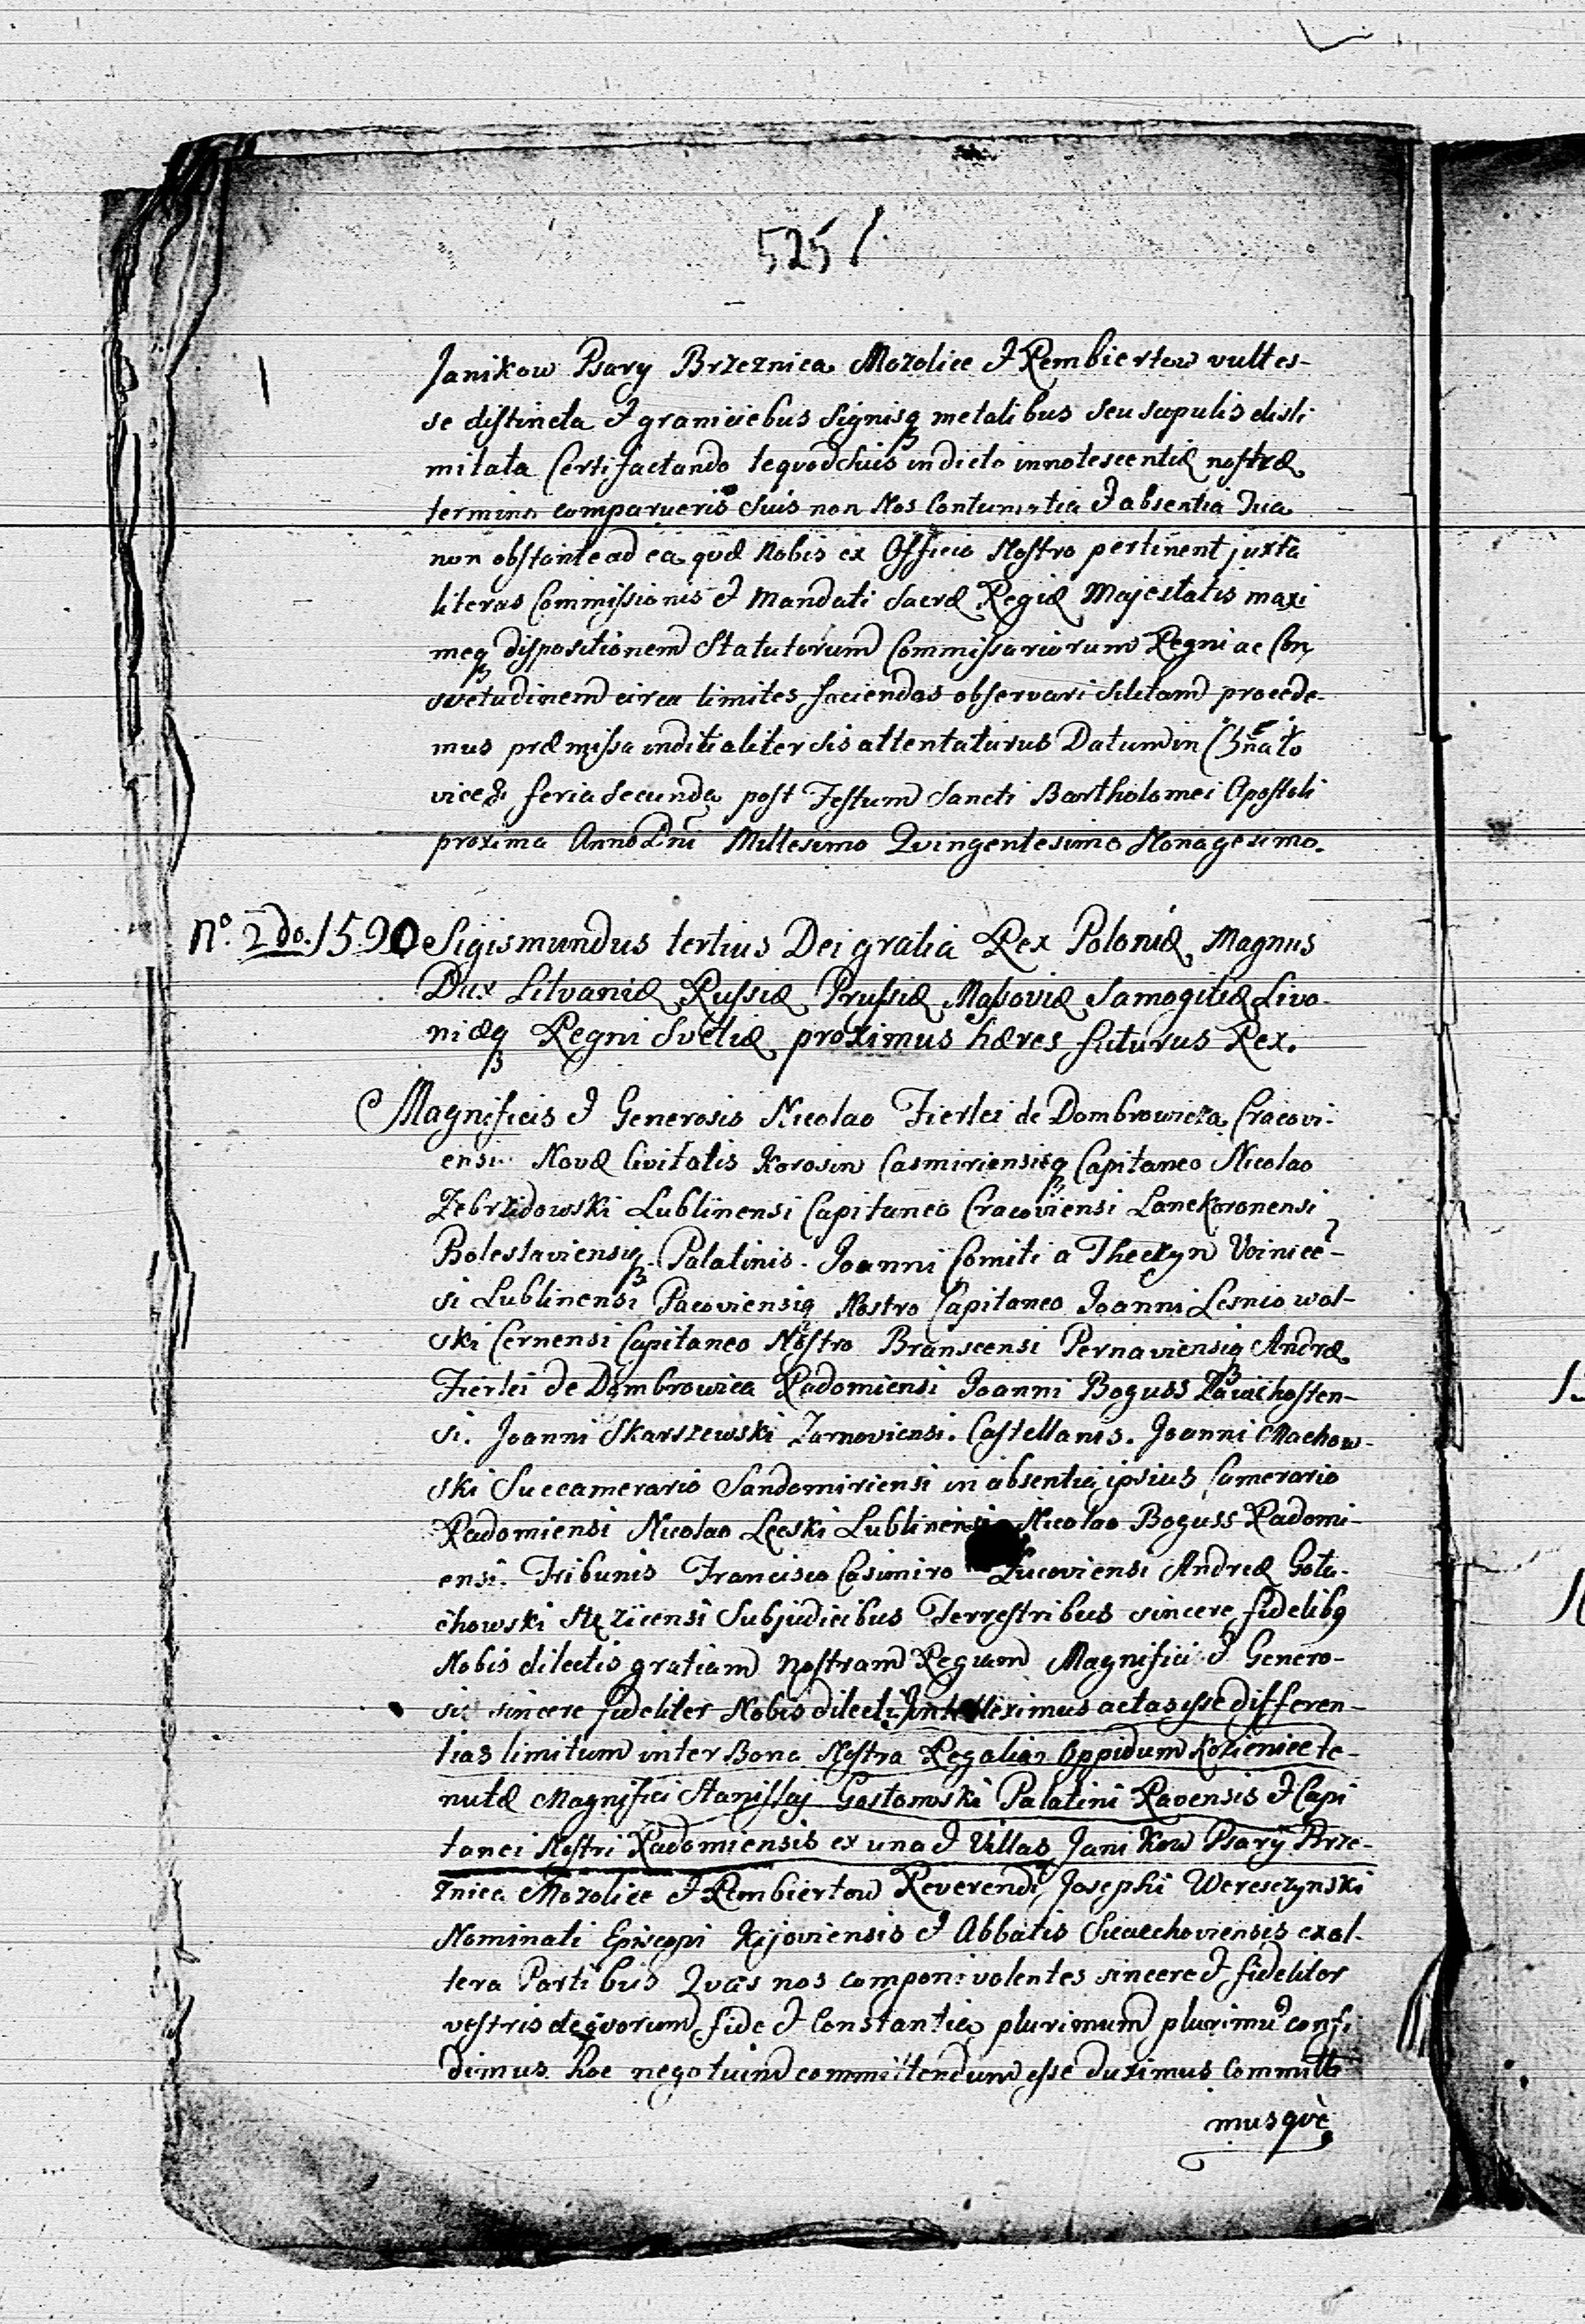 525
Janikow Psary Brzeznica Mozolice & Rembiertow vult es-
se distincta & graniciebus Signisq metalibus seu scupulis disli
mitata Certifactando te quod Suis in dicto innotescentiæ nostræ
termino comparueris Suis non Nos Contumatia & absentia Tua
non obstante ad ea quæ Nobis ex Officio Nostro pertinent juxta
literas Commissionis & Mandati Sacræ Regiæ Majestatis maxi
meq dispositionem Statutorum Commissariorum Regni ac Con
svetudinem circa limites faciendas observari Silitam procede-
mus præmissa inditialiter Sis attentaturus Datum in
feria Secunda post Festum Sancti Bartholomei Apostoli
proxima Anno Dni Millesimo Qvingentesimo Nonagesimo.
No. 2do. 1590 Sigismundus tertius Dei gratia Rex Poloniæ Magnus
Dux Litvaniæ Russiæ Prussiæ Masoviæ Samogitiæ Livo-
niæq Regni Svetiæ proximus hæres futurus Rex.
Magnificis & Generosis Nicolao Fierlei de Dombrowicza Cracovi-
ensi Novæ Civitatis Korosin Casmiriensisq Capitaneo Nicolao
Zebrzidowski Lublinensi Capitaneo Cracoviensi Lanckoronensi
Bolestaviensiq Palatinis. Joanni Comiti a Thecyn Voinice-
si Lublinensi Pacoviensiq Nostro Capitaneo Joanni Lesnio wol-
ski Cernensi Capitaneo Nostro Branscensi Pernaviensiq Andræ
Fierlei de Dombrowica Radomiensi Joanni Boguss Zawichosten-
si. Joanni Skarszewski Zarnoviensi. Castellanis. Joanni Machow-
ski Succamerario Sandomiriensi in absentia ipsius Camerario
Radomiensi Nicolao Lecski Lublinensi Nicolao Boguss Radomi-
ensi. Tribunis Francisco Casimiro Lucoviensi Andreæ Golu-
chowski Stęzicensi Subjudicibus Terrestribus sincere fidelibq
Nobis dilectis gratiam Nostram Regiam Magnifici & Genero-
si sincere fideliter Nobis dilecti Intelleximus actas esse differen-
tias limitum inter Bona Nostra Regalia Oppidum Kozieniece te-
nutæ Magnifici Stanislaj Gostomski Palatini Ravensis & Capi
tanei Nostri Radomiensis ex una & Villas Janikow Psary Brze-
znica Mozolice & Rembiertow Reverendi Josephi Wereszynski
Nominati Episcopi Kijoviensis & Abbatis Sieciechoviensis ex al-
tera Partibus Qvas nos componi volentes sincere & fideliter
vestris de qvorum fide & Constantia plurimum plurimu confi
dimus hoc negotium committendum esse duximus Committi
musqve